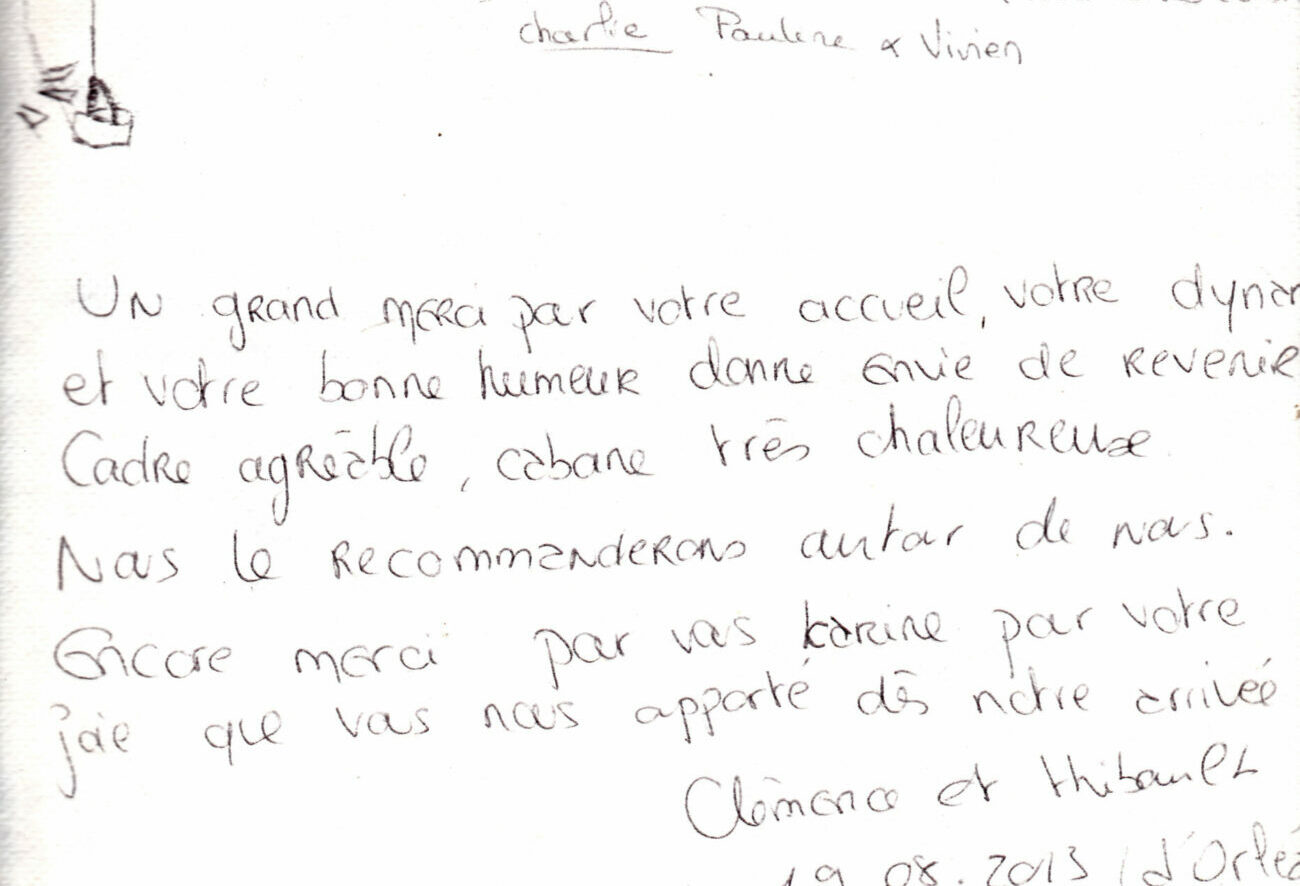 charlie Paulene & Vivien
Un grand merci par votre accueil, votre
et votre bonne humeur donne envie de revenir
Cadre agréable, cabane très chaleureuse
Nous le recommanderons autour de nous.
Encore merci par vous Karine pour votre
joie que vous nous apporté dès notre arrivée
Clémence et Thibault
19.08.2013